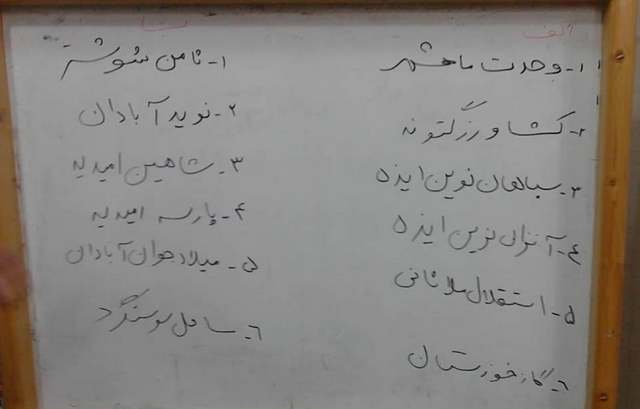 الف
۱- وحدت ماهشهر
۲- کشاورز گتوند
۳- سپاهان نوین ایذه
۴- آنزان نوین ایذه
۵- استقلال ملاثانی
۶- گاز خوزستان
۱- ثامن شوشتر
۲- نوید آبادان
۳- شاهین امیدیه
۴- پارسه امیدیه
۵- میلاد جوان آبادان
۶- ساحل سوسنگرد